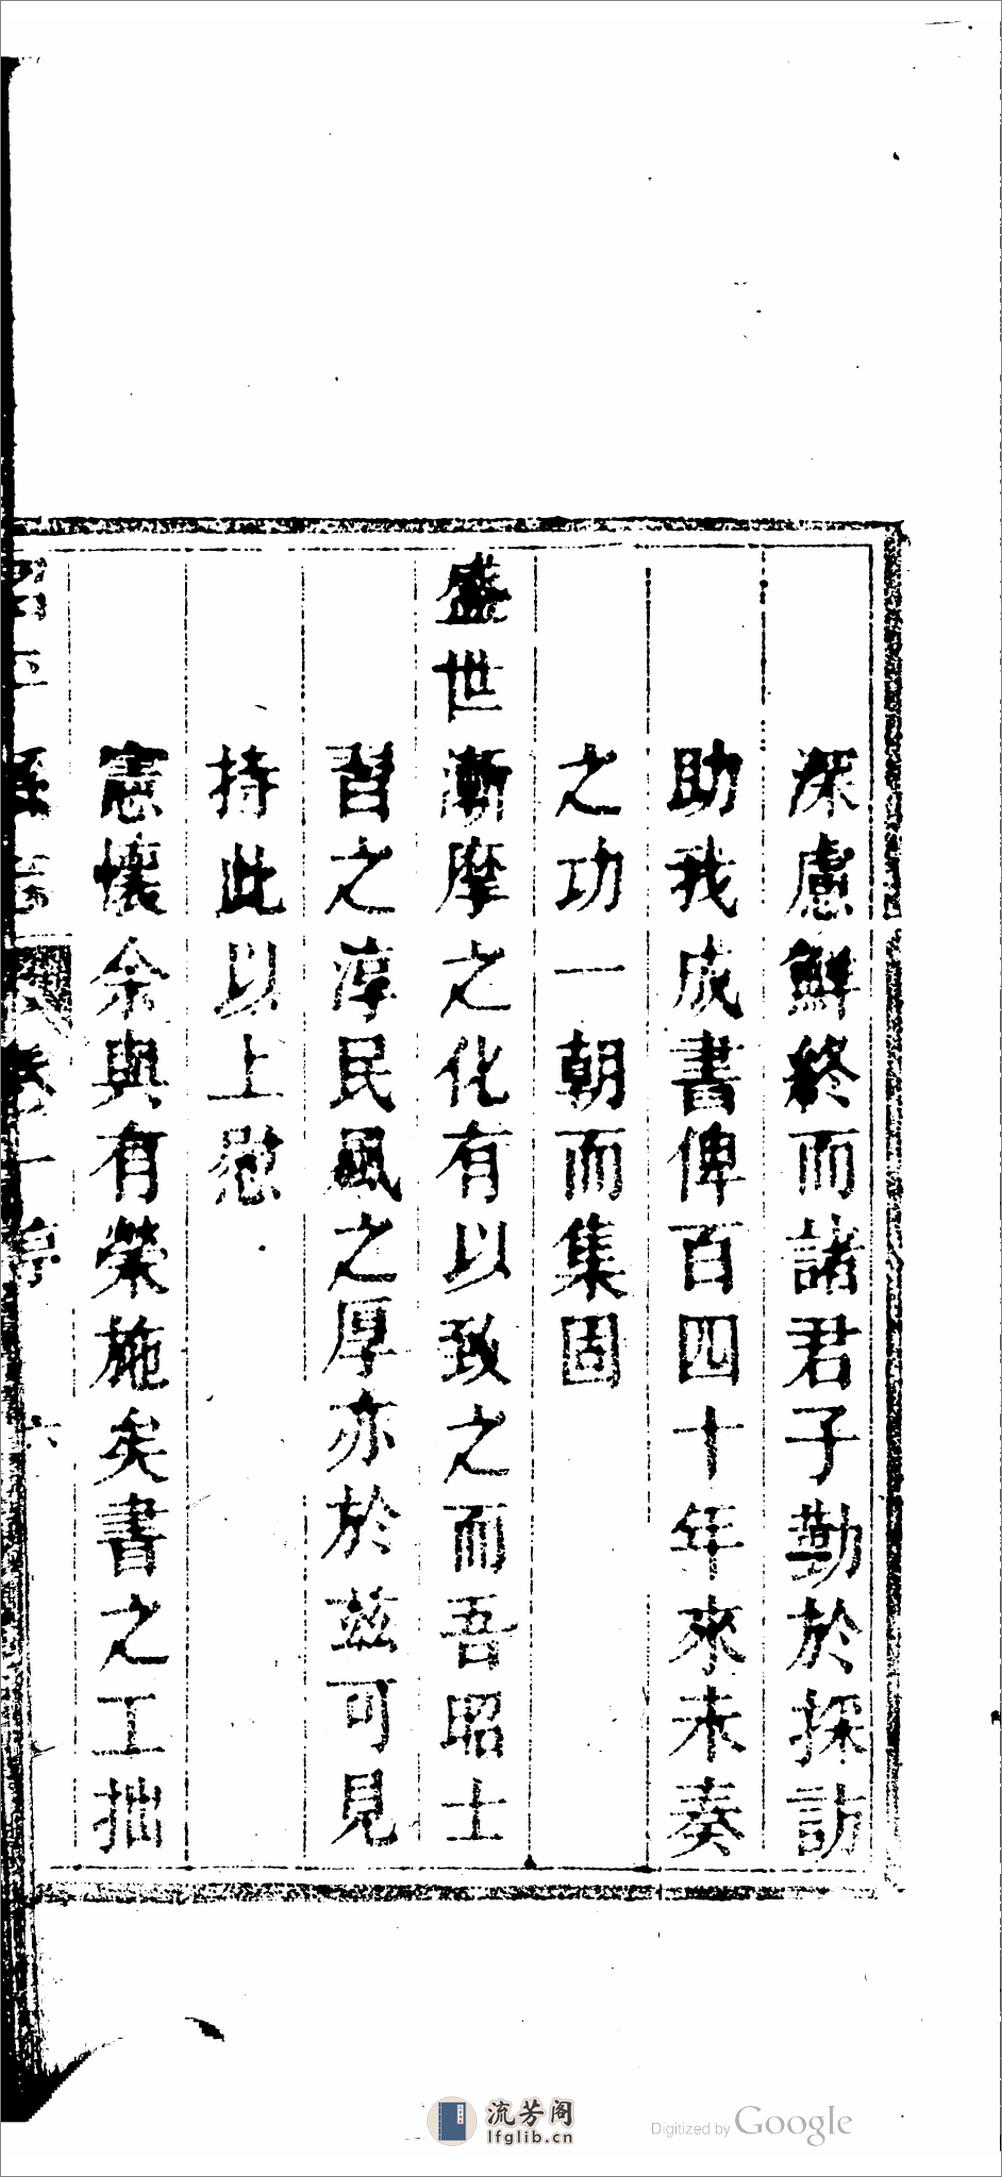 深慮鮮終而諸君子勤於採訪
助我成書俾百四十年來未奏
之功一朝而集固
盛世漸摩之化有以致之而吾昭士
習之淳民風之厚亦於兹可見
持此以上慰
憲懷余與有榮施矣書之工拙
昭平縣志 卷一 序 六
流芳阁
lfglib.cn
Digitized by Google